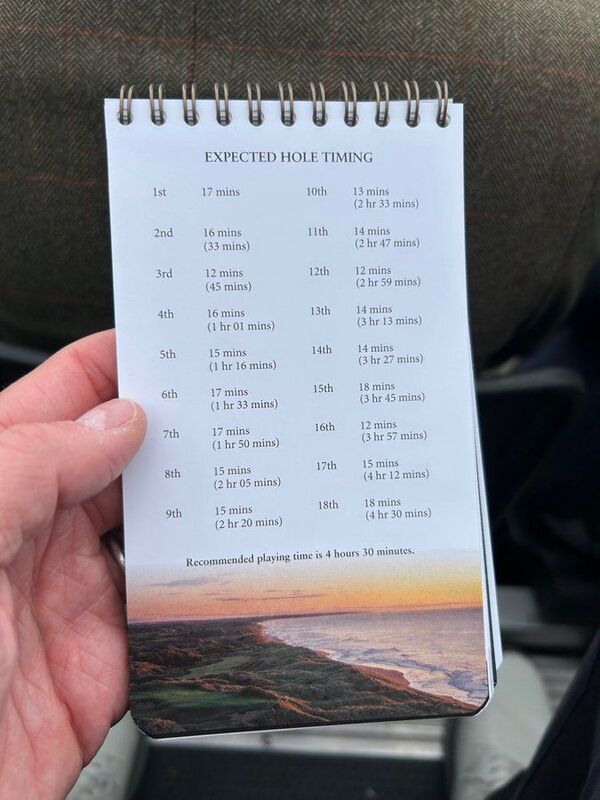 EXPECTED HOLE TIMING
1st 17 mins
2nd 16 mins
(33 mins)
3rd 12 mins
(45 mins)
4th 16 mins
(1 hr 01 mins)
5th 15 mins
(1 hr 16 mins)
6th 17 mins
(1 hr 33 mins)
7th 17 mins
(1 hr 50 mins)
8th 15 mins
(2 hr 05 mins)
9th 15 mins
(2 hr 20 mins)
10th 13 mins
(2 hr 33 mins)
11th 14 mins
(2 hr 47 mins)
12th 12 mins
(2 hr 59 mins)
13th 14 mins
(3 hr 13 mins)
14th 14 mins
(3 hr 27 mins)
15th 18 mins
(3 hr 45 mins)
16th 12 mins
(3 hr 57 mins)
17th 15 mins
(4 hr 12 mins)
18th 18 mins
(4 hr 30 mins)
Recommended playing time is 4 hours 30 minutes.